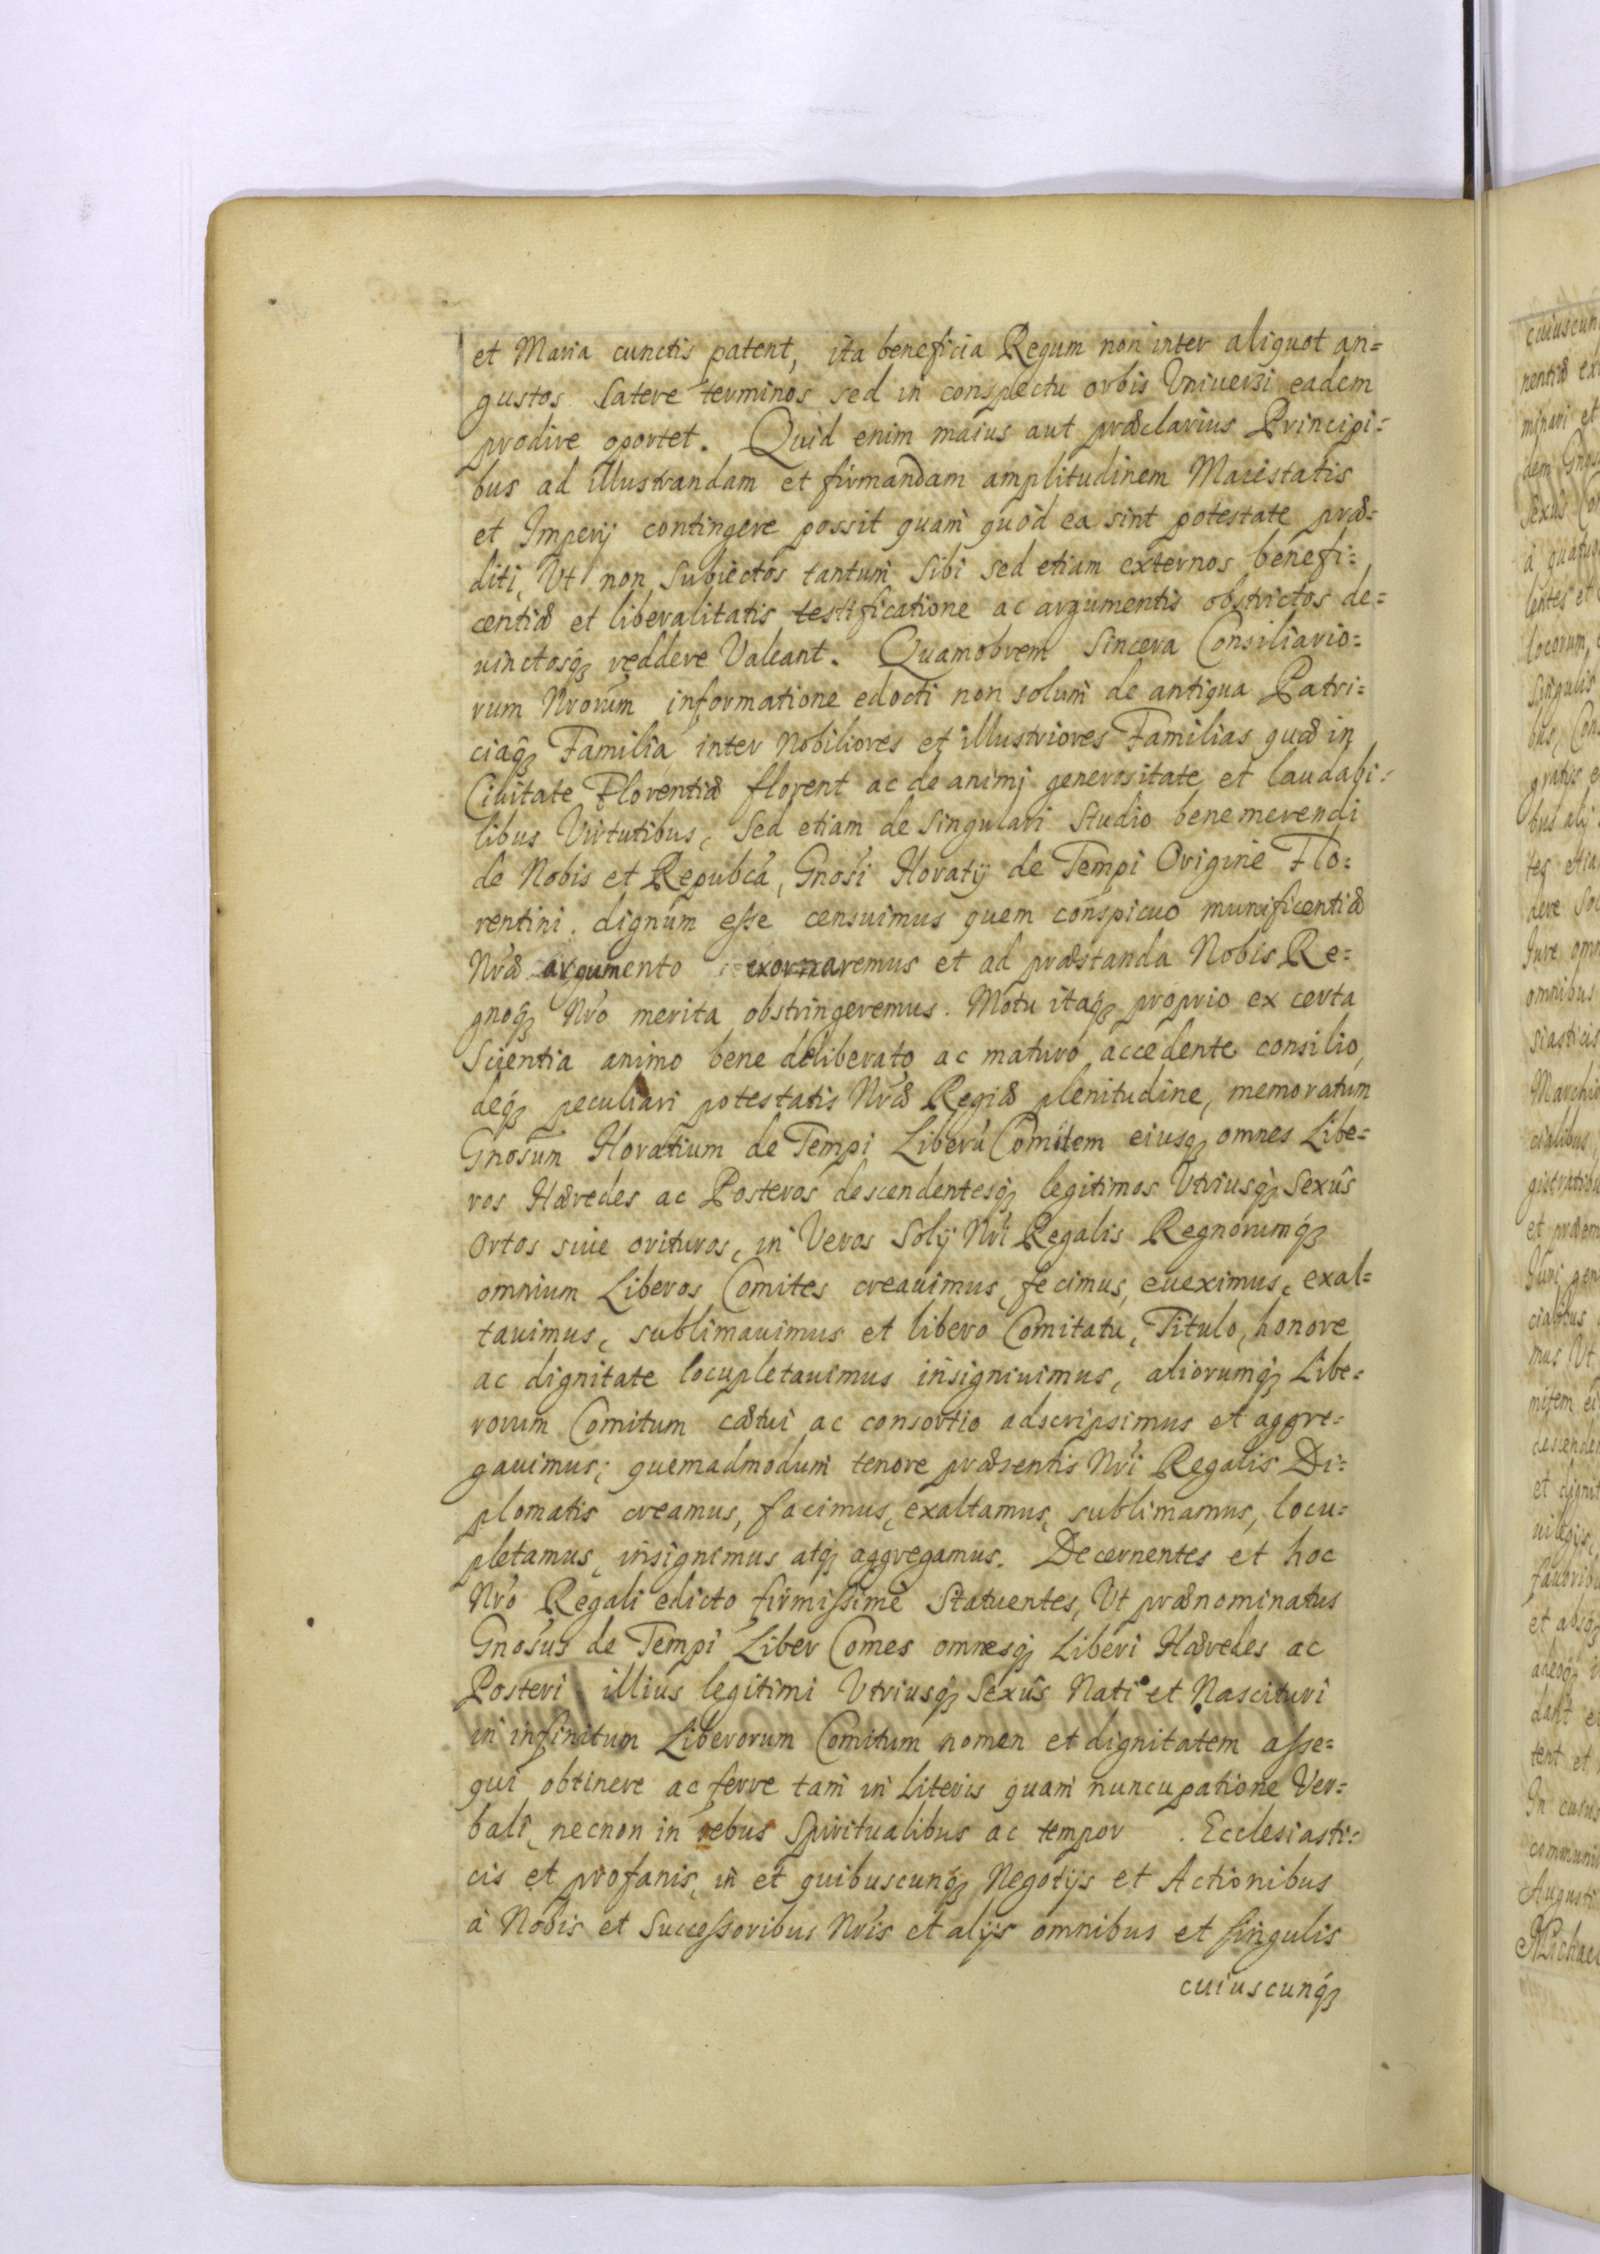 et Maria cunctis patent, ita beneficia Regum non inter aliquot an=
gustos latere terminos sed in conspectu orbis Vniuersi eadem
prodire oportet. Quid enim maius aut præclarius Principi=
bus ad illustrandam et firmandam amplitudinem Maiestatis
et Imperij contingere possit quam quòd ea sint potestate præ=
diti, Vt non subiectos tantum sibi sed etiam externos benefi=
centiæ et liberalitatis testificatione ac argumentis obstrictos de=
uinctosq́ꝫ reddere Valeant. Quamobrem sincera Consiliario=
rum Nrorum informatione edocti non solum de antiqua Patri=
ciaq́ꝫ Familia inter Nobiliores et illustriores Familias quæ in
Ciuitate Florentiæ florent ac de animj generositate et laudabi=
libus Virtutibus, sed etiam de singulari studio bene merendi
de Nobis et Repubca, Gnosi Horatij de Tempi Origine Flo=
rentini. dignum esse censuimus quem conspicuo munificentiæ
Nræ argumento exornaremus et ad præstanda Nobis Re=
gnoq́ꝫ Nro merita obstringeremus. Motu itaq́ꝫ proprio ex certa
Scientia animo bene deliberato ac maturo accedente consilio,
deq́ꝫ peculiari potestatis Nræ Regiæ plenitudine, memoratum
Gnosum Horatium de Tempi Liberũ Comitem eiusq́ꝫ omnes Libe=
ros Hæredes ac Posteros descendentesq́ꝫ legitimos Vtriusq́ꝫ Sexûs
Ortos siue orituros, in Veros Solij Nri Regalis Regnorumq́ꝫ
omnium Liberos Comites creauimus, fecimus, eueximus, exal=
tauimus, sublimauimus et libero Comitatu, Titulo, honore
ac dignitate locupletauimus insigniuimus, aliorumq́ꝫ Libe=
rorum Comitum cætui ac consortio adscripsimus et aggre=
gauimus; quemadmodum tenore præsentis Nri Regalis Di=
plomatis creamus, facimus, exaltamus, sublimamus, locu=
pletamus, insignimus atq́ꝫ aggregamus. Decernentes et hoc
Nro Regali edicto firmissimè Statuentes, Vt prænominatus
Gnosus de Tempi Liber Comes omnesq́ꝫ Liberi Hæredes ac
Posteri illius legitimi Vtriusq́ꝫ Sexûs Nati et Nascituri
in infinitum Liberorum Comitum nomen et dignitatem asse=
qui obtinere ac ferre tam in literis quam nuncupatione Ver=
bali, necnon in rebus Spiritualibus ac tempor . Ecclesiasti=
cis et profanis, in et quibuscunq́ꝫ Negotijs et Actionibus
à Nobis et Successoribus Nris et alijs omnibus et singulis
cuiuscunq́ꝫ